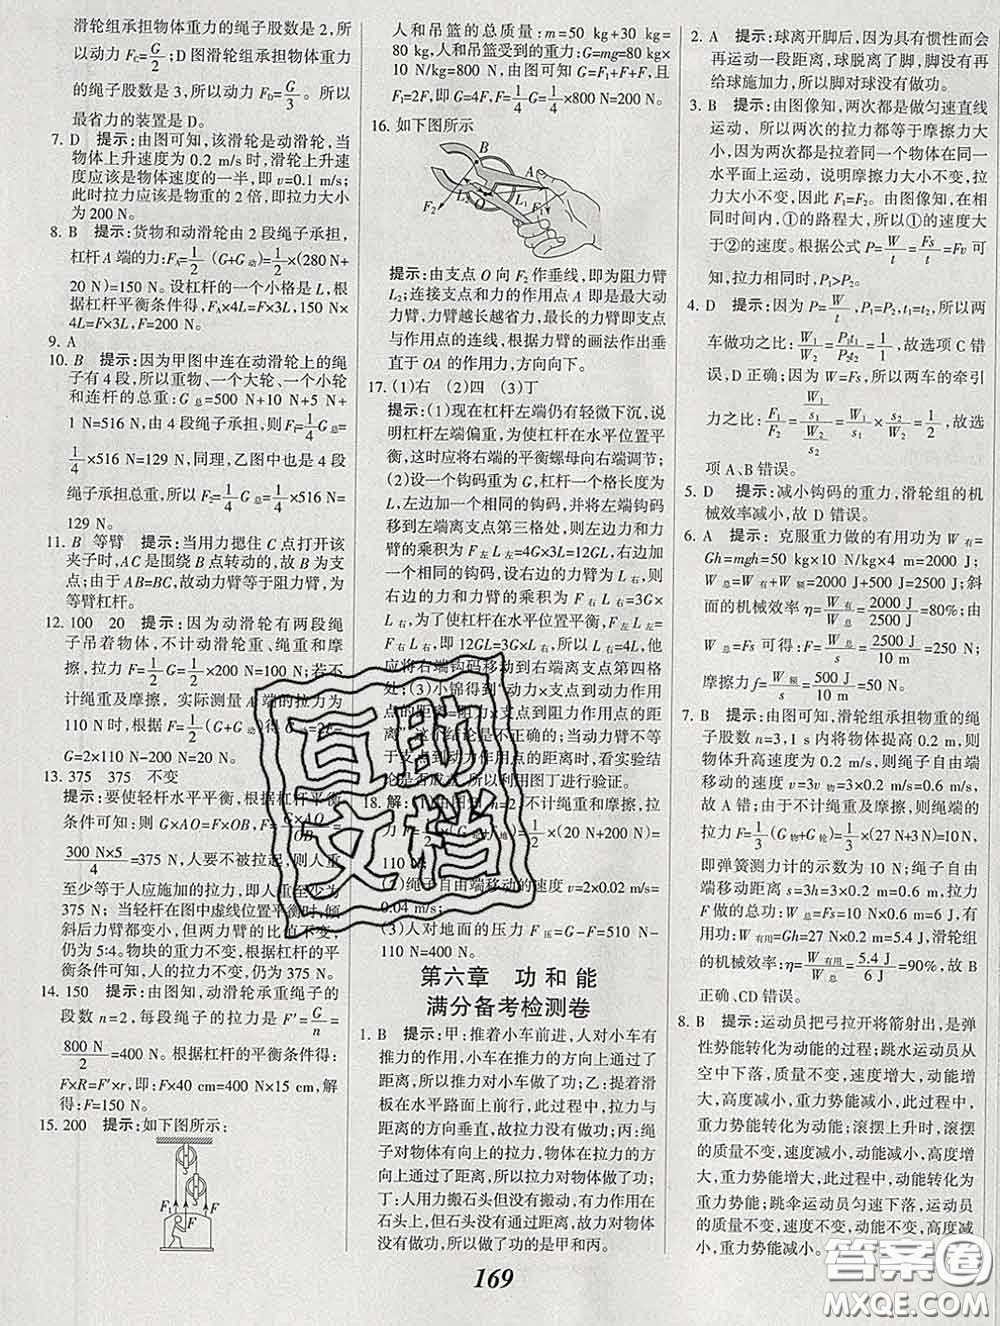 滑轮组承担物体重力的绳子股数是 2,所
以动力 F_C=G/2;D 图滑轮组承担物体重力
的绳子股数是 3,所以动力 F_D=G/3。所以
最省力的装置是 D。
7. D 提示:由图可知,该滑轮是动滑轮,当
物体上升速度为 0.2 m/s 时,滑轮上升速
度应该是物体速度的一半,即 v=0.1 m/s;
此时拉力应该是物重的 2 倍,即拉力大小
为 200 N。
8. B 提示:货物和动滑轮由 2 段绳子承担,
杠杆 A 端的力:F_A=1/2(G+G动)=1/2×(280 N+
20 N)=150 N。设杠杆的一个小格是 L,
根据杠杆平衡条件得,F_A×4L=F×3L,150 N×
4L=F×3L,F=200 N。
9. A
10. B 提示:因为甲图中连在动滑轮上的绳
子有 4 段,所以重物、一个大轮、一个小轮
和连杆的总重:G总=500 N+10 N+5 N+
1 N=516 N,由 4 段绳子承担,则 F1=1/4G总=
1/4×516 N=129 N,同理,乙图中也是 4 段
绳子承担总重,所以 F2=1/4G总=1/4×516 N=
129 N。
11. B 等臂 提示:当用力摁住 C 点打开该
夹子时,AC 是围绕 B 点转动的,故 B 为支
点;由于 AB=BC,故动力臂等于阻力臂,为
等臂杠杆。
12. 100 20 提示:因为动滑轮有两段绳
子吊着物体,不计动滑轮重、绳重和摩
擦,拉力 F=1/2G=1/2×200 N=100 N;若不
计绳重及摩擦,实际测量 A 端的拉力为
110 N 时,根据 F=1/2(G+G动)得:G动=2F-
G=2×110 N-200 N=20 N。
13. 375 375 不变
提示:要使轻杆水平平衡,根据杠杆平衡
条件可知:所以 G×AO=F×OB,F=G×AO/OB=
300 N×5/4=375 N,人要不被拉起,则人重
至少等于人应施加的拉力,即人重至少为
375 N;当轻杆在图中虚线位置平衡时,倾
斜后力臂都变小,但两力臂的比值不变,
仍为 5:4。物块的重力不变,根据杠杆的平
衡条件可知,人的拉力不变,仍为 375 N。
14. 150 提示:由图知,动滑轮承重绳子的
段数 n=2,每段绳子的拉力是 F′=G/n=
800 N/2=400 N。根据杠杆的平衡条件得:
F×R=F′×r,即:F×40 cm=400 N×15 cm,解
得:F=150 N。
15. 200 提示:如下图所示:
F1 F F
人和吊篮的总质量:m=50 kg+30 kg=
80 kg,人和吊篮受到的重力:G=mg=80 kg×
10 N/kg=800 N,由图可知 G=F1+F+F,且
F1=2F,即 G=4F,F=1/4G=1/4×800 N=200 N。
16. 如下图所示
B A O L2 L1 F2 F1
提示:由支点 O 向 F2 作垂线,即为阻力臂
L2;连接支点和力的作用点 A 即是最大动
力臂,力臂越长越省力,最长的力臂即支点
与作用点的连线,根据力臂的画法作出垂
直于 OA 的作用力,方向向下。
17. (1)右 (2)四 (3)丁
提示:(1)现在杠杆左端仍有轻微下沉,说
明杠杆左端偏重,为使杠杆在水平位置平
衡,这时应将右端的平衡螺母向右端调节;
(2)设一个钩码重为 G,杠杆一个格长度为
L,左边加一个相同的钩码,并将左端钩码
移到左端离支点第三格处,则左边力和力
臂的乘积为 F左L左=4G×3L=12GL,右边加
一个相同的钩码,设右边的力臂为 L右,右边
的力和力臂的乘积为 F右L右=3G×
L右,由于杠杆在水平位置平衡,F左L左=F右
L右,即 12GL=3G×L右,所以 L右=4L,所以
应将右端钩码移动到右端离支点第四格
处;(3)小锦得到“动力×支点到动力作用
点的距离=阻力×支点到阻力作用点的距
离”,这个结论是不正确的,当动力臂不等
于支点到动力作用点的距离时,看实验结
论是否成立,所以利用图丁进行验证。
18. 解:(1)由图知 n=2,不计绳重和摩擦,拉
力 F=1/2(G+G动)=1/2×(20 N+200 N)=
110 N
(2)绳子自由端移动的速度 v=2×0.02 m/s=
0.04 m/s;
(3)人对地面的压力 F压=G-F=510 N-
110 N=400 N。
第六章 功和能
满分备考检测卷
1. B 提示:甲:推着小车前进,人对小车有
推力的作用,小车在推力的作用下通过了
距离,所以推力对小车做了功;乙:提着滑
板在水平路面上前行,此过程中,拉力与
距离的方向垂直,故拉力没有做功;丙:绳
子对物体有向上的拉力,物体在拉力的方
向上通过了距离,所以拉力对物体做了功;
丁:人用力搬石头但没有搬动,有力作用在
石头上,但石头没有动,故力对物体
没有做功,所以做了功的是甲和丙。
2. A 提示:球离开脚后,因为具有惯性而会
再运动一段距离,球脱离了脚,脚没有再
给球施加力,所以脚对球没有做功。
3. B 提示:由图像知,两次都是做匀速直线
运动,所以两次的拉力都等于摩擦力大小,
因为两次都是拉着同一个物体在同一
水平面上运动,说明摩擦力大小不变,拉
力大小不变,因此 F1=F2。由图像知,在相
同时间内,①的路程大,所以①的速度大
于②的速度。根据公式 P=W/t=Fs/t=Fv 可
知,拉力相同时,P1>P2。
4. D 提示:因为 P=W/t,P1=P2,t1=t2,所以两
车做功之比:W1/W2=P1t1/P2t2=1/1,故选项 C 错
误,D 正确;因为 W=Fs,所以两车的牵引
力之比:F1/F2=(W1/s1)/(W2/s2)=W1/s1×s2/W2=1/2,故选
项 A、B 错误。
5. D 提示:减小钩码的重力,滑轮组的机
械效率减小,故 D 错误。
6. A 提示:克服重力做的有用功为 W有=
Gh=mgh=50 kg×10 N/kg×4 m=2000 J;
W总=W有+W额=2000 J+500 J=2500 J;斜
面的机械效率 η=W有/W总=2000 J/2500 J=80%;由
W总=Fs 可得,F=W总/s=2500 J/10 m=250 N;
摩擦力 f=W额/s=500 J/10 m=50 N。
7. B 提示:由图可知,滑轮组承担物重的绳
子股数 n=3,1 s 内将物体提高 0.2 m,则
物体升高速度为 0.2 m/s,绳子自由端
移动的速度 v=3v物=3×0.2 m/s=0.6 m/s,
故 A 错;由于不计绳重及摩擦,则绳端的
拉力 F=1/3(G物+G轮)=1/3×(27 N+3 N)=10 N,
即弹簧测力计的示数为 10 N;绳子自由
端移动距离 s=3h=3×0.2 m=0.6 m,拉力
F 做的总功:W总=Fs=10 N×0.6 m=6 J,有
用功:W有用=Gh=27 N×0.2 m=5.4 J,滑轮组
的机械效率:η=W有用/W总=5.4 J/6 J=90%,所以
B 正确、CD 错误。
8. B 提示:运动员把弓拉开将箭射出,是弹
性势能转化为动能的过程;跳水运动员从
空中下落,质量不变,速度增大,动能增
大,高度减小,重力势能减小,此过程中重
力势能转化为动能;滚摆上升时,滚摆
的质量不变,速度减小,动能减小,高度增
大,重力势能增大,此过程中,动能转化为
重力势能;跳伞运动员匀速下落,运动员
的质量不变,速度不变,动能不变,高度减
小,重力势能减小。
169
互助
文档
答案圈
MXQE.COM